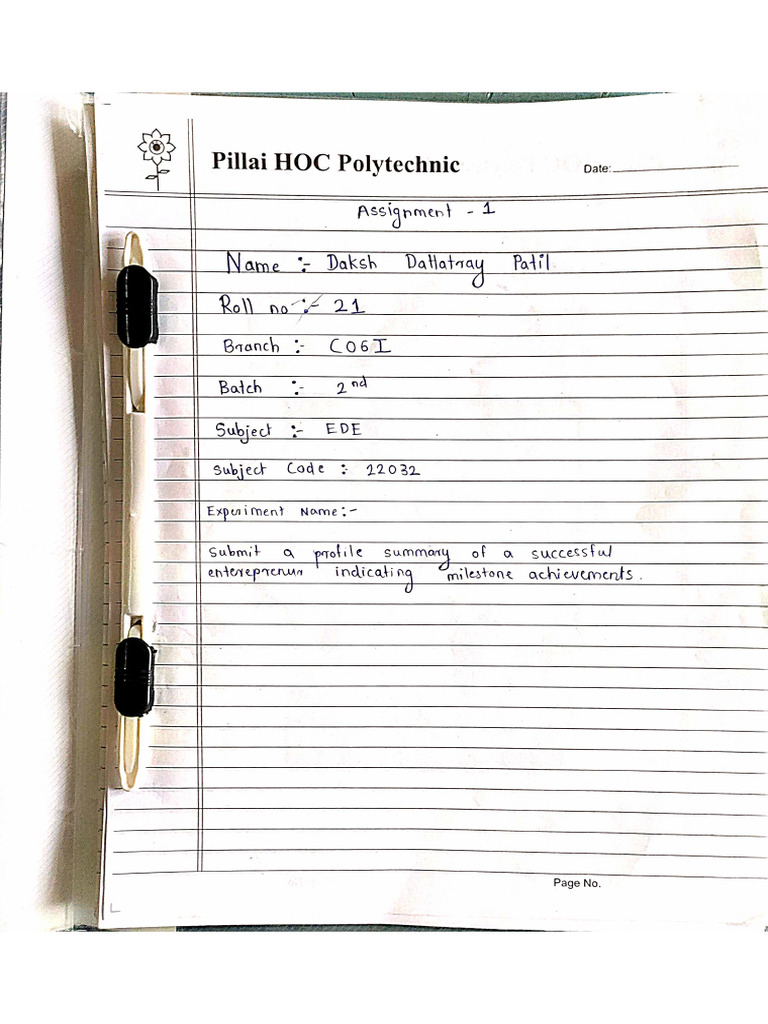 Pillai HOC Polytechnic
Date:
Assignment - 1
Name :- Daksh Dattatray Patil
Roll no :- 21
Branch :- CO6I
Batch :- 2nd
Subject :- EDE
Subject Code : 22032
Experiment Name:-
Submit a profile summary of a successful
entereprenur indicating milestone achievements.
Page No.